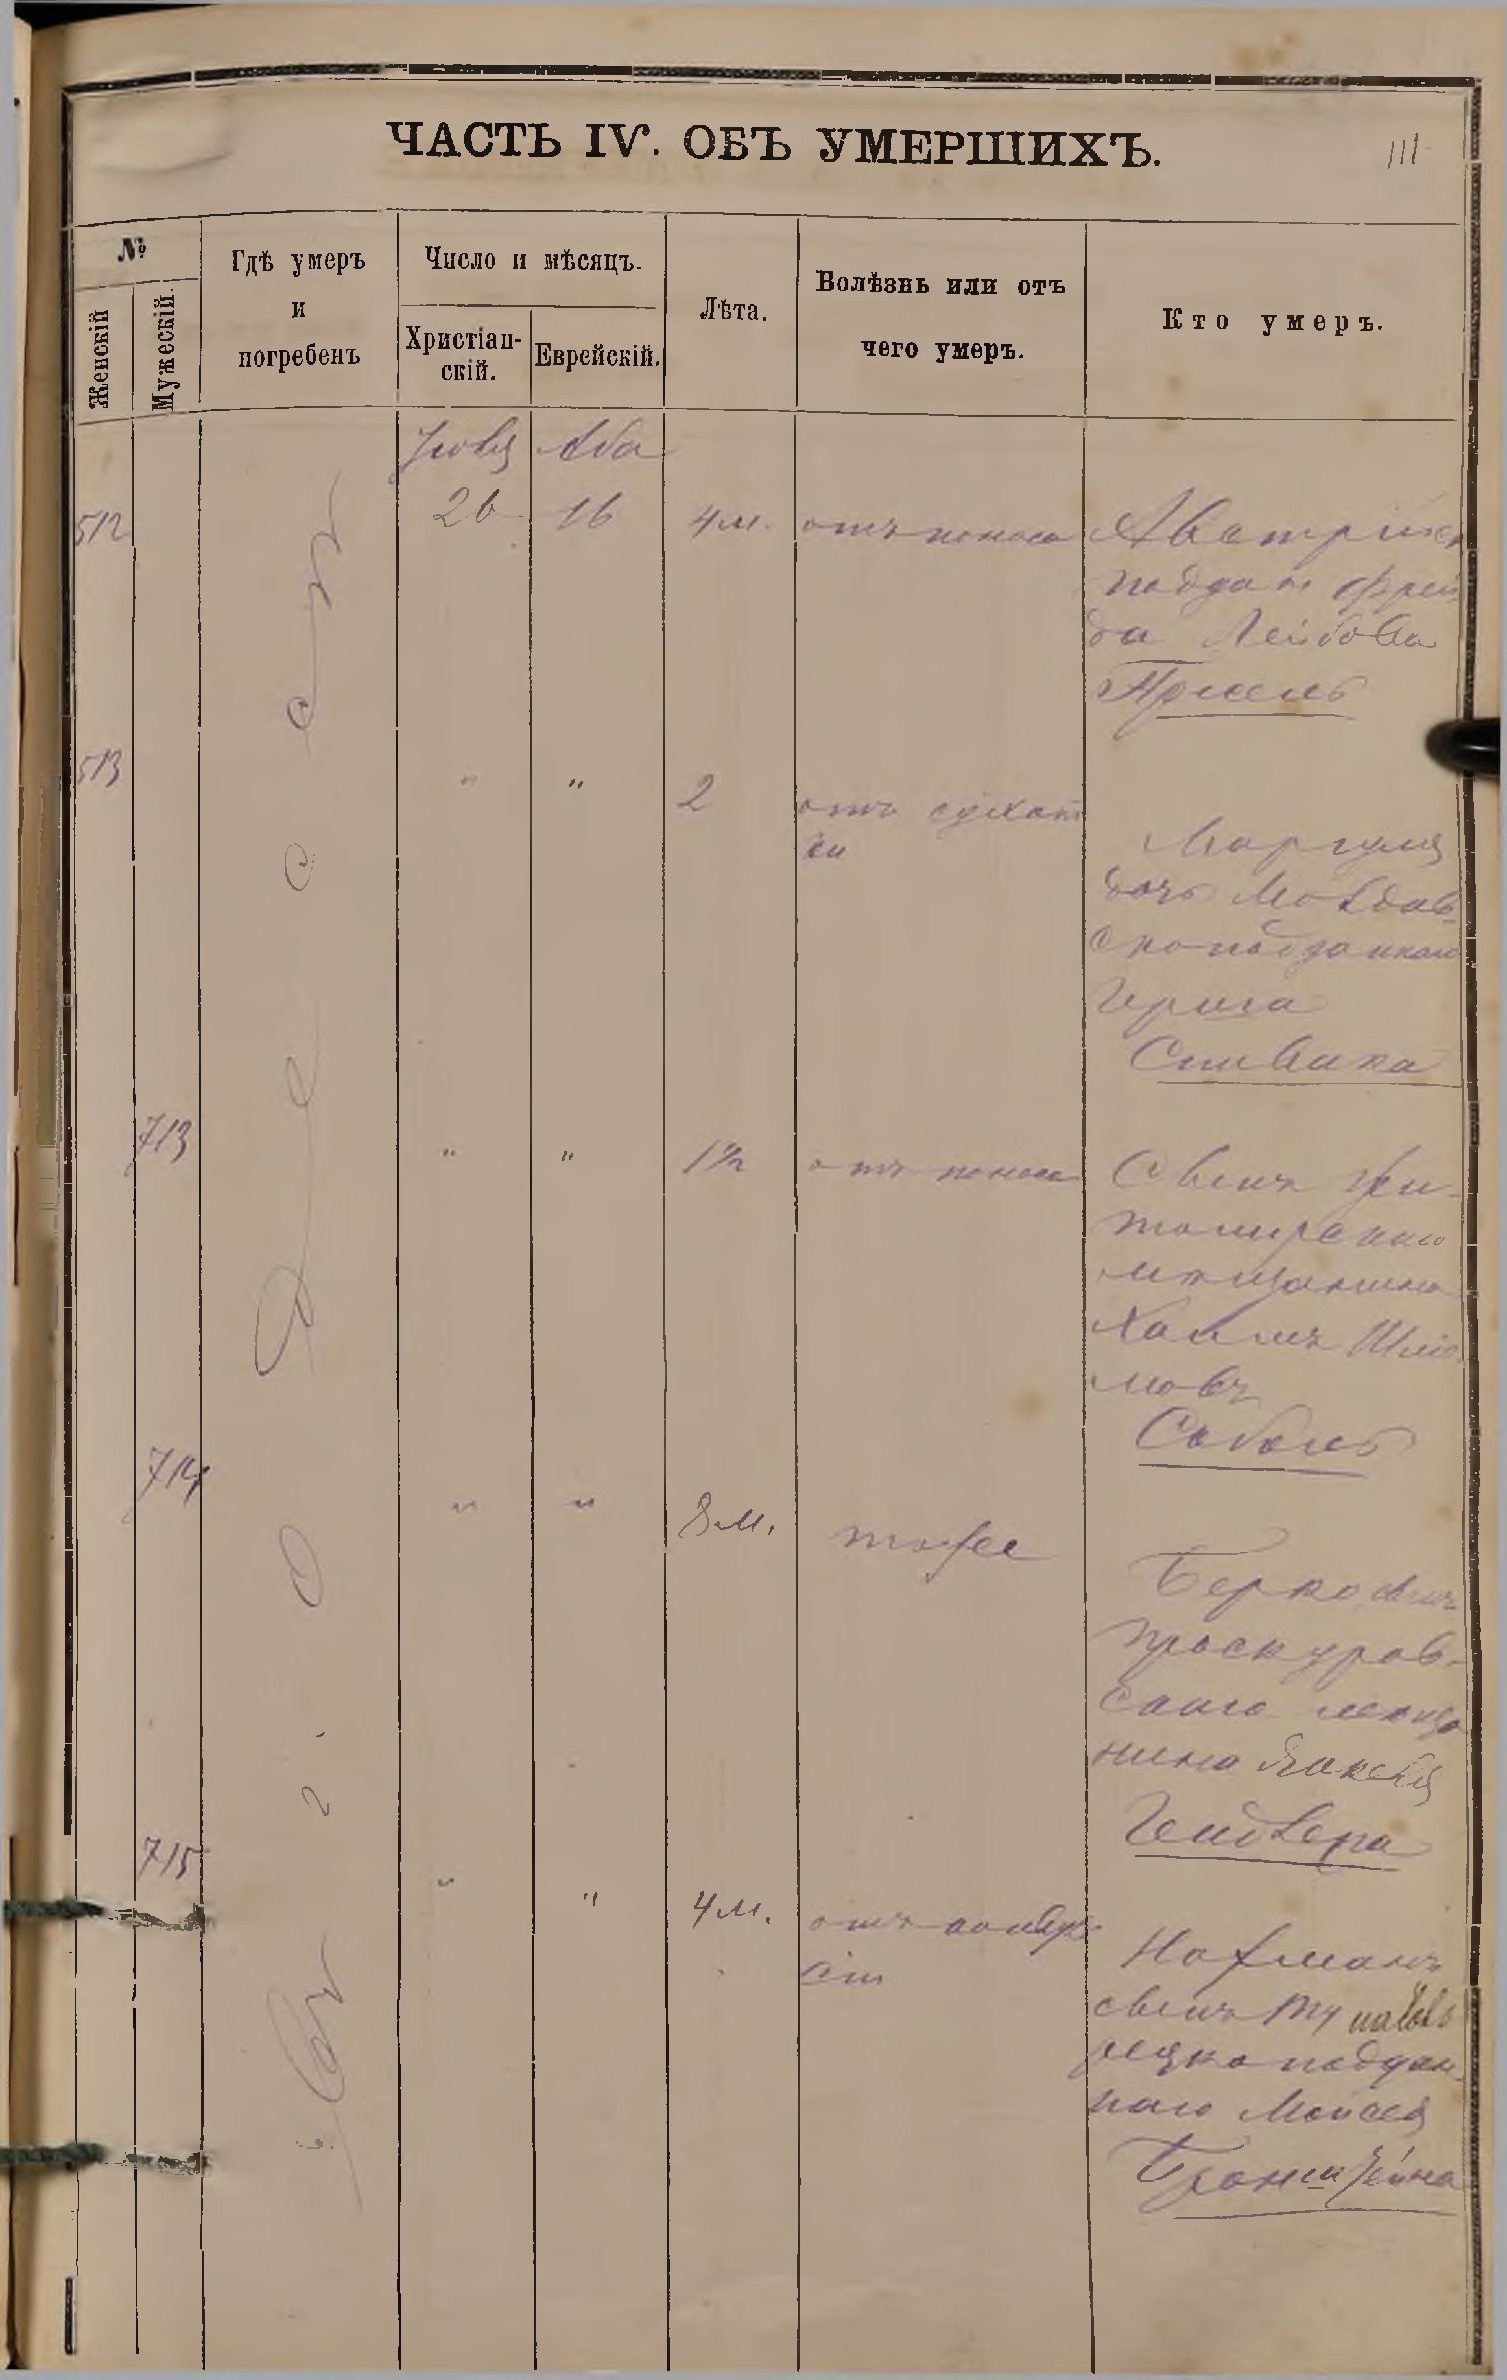 ЧАСТЬ IV. ОБЪ УМЕРШИХЪ.
111
№
Женскій
Мужескій.
Гдѣ умеръ
и
погребенъ
Число и мѣсяцъ.
Христіан-
скій.
Еврейскій.
Лѣта.
Болѣзнь или отъ
чего умеръ.
Кто умеръ.
въ г. Одессѣ
Іюля Аба
512 26 16 4 м. отъ поноса Австрійск
поддан Фрей
да Лейбова
513 " " 2 отъ сухот
ки
Маргуля
дочь Молдав-
скоподданнаго
Герша
Спивака
713 " " 1½ отъ поноса Сынъ Жи-
томирскаго
мѣщанина
Хаимъ Шлio
мовъ
Соболь
714 " " 8 м. тоже
Берко сынъ
Проскуров-
скаго мѣща
нина Янкеля
Гендлера
715 " " 4 м. отъ конвуль
сіи
Нахманъ
сынъ Ту
рецкоподдан-
наго Моисея
Бронштейна